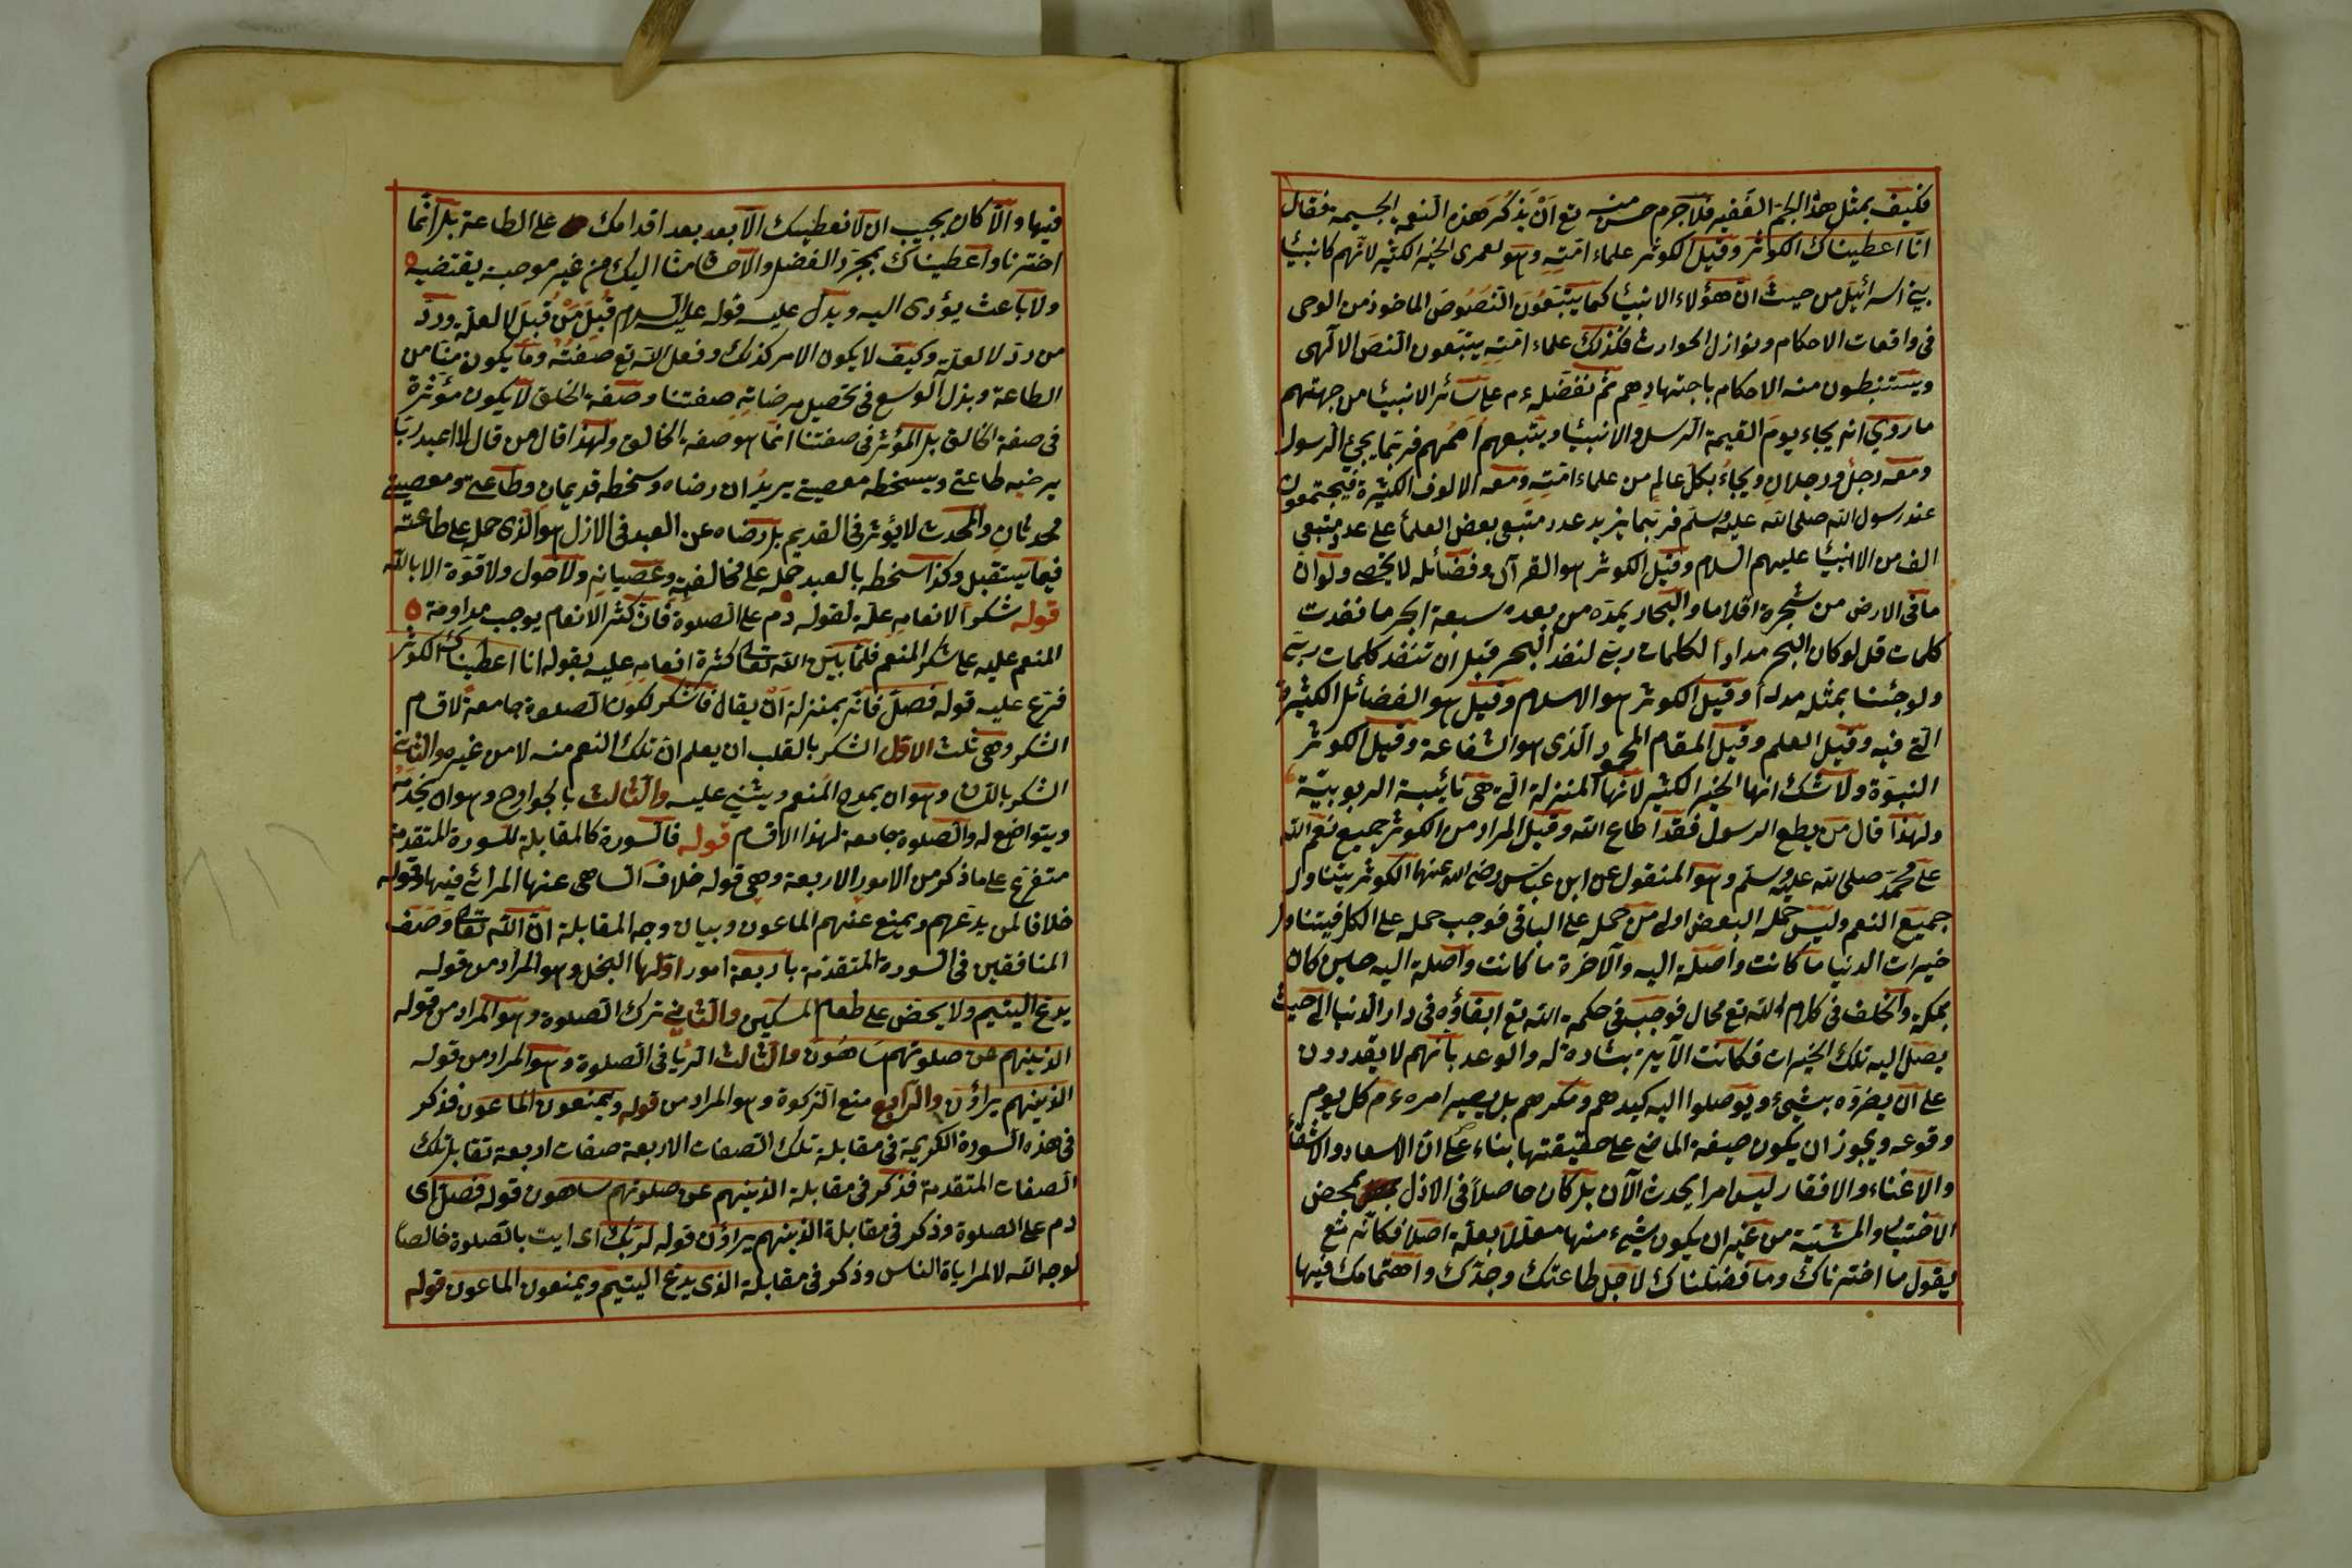 فكيف بمثل هذا الجم الفقير فلا جرم حسن منه تع ان يذكر هذه النعمة الجسيمة فقال
انا اعطيناك الكوثر وقيل الكوثر علماء امته وهو لعمرى الخير الكثير لانهم كانبياء
بنى اسرائيل من حيث ان هؤلاء الانبياء كما يتبعون النصوص الماخوذ من الوحى
فى واقعات الاحكام ونوازل الحوادث فكذلك علماء امته يتبعون النص الالهى
ويستنبطون منه الاحكام باجتهادهم ثم نفضله ءم على سائر الانبياء من جهتهم
ما روى انه يجاء يوم القيمة الرسل والانبياء ويتبعهم اممهم فربما يجئ الرسول
ومعه رجل ورجلان ويجاء بكل عالم من علماء امته ومعه الالوف الكثيرة فيجتمعون
عند رسول الله صلى الله عليه وسلم فربما يزيد عدد متبعى بعض العلماء على عدد متبعى
الف من الانبياء عليهم السلام وقيل الكوثر هو القرآن وفضائله لا تحصى ولو ان
ما فى الارض من شجرة اقلاما والبحار يمده من بعده سبعة ابحر ما نفدت
كلمات قل لو كان البحر مدادا لكلمات ربى لنفد البحر قبل ان تنفد كلمات ربى
ولو جئنا بمثله مددا وقيل الكوثر هو الاسلام وقيل هو الفضائل الكثيرة
التى فيه وقيل العلم وقيل المقام المحمود الذى هو الشفاعة وقيل الكوثر
النبوة ولا شك انها الخير الكثير لانها المنزلة التى هى نائبة الربوبية
ولهذا قال من يطع الرسول فقد اطاع الله وقيل المراد من الكوثر جميع نعم الله
على محمد صلى الله عليه وسلم وهو المنقول عن ابن عباس رضى الله عنهما الكوثر يتناول
جميع النعم وليس حمله البعض اولى من حمله على الباقى فوجب حمله على الكل فيتناول
خيرات الدنيا ما كانت واصلة اليه والآخرة ما كانت واصلة اليه حين كان
بمكة والخلف فى كلام الله تع محال فوجب فى حكمة الله تع ابقاؤه فى دار الدنيا الى حيث
يصل اليه تلك الخيرات فكانت الآية بشارة له والوعد بانهم لا يقدرون
على ان يضروه بشىء ويوصلوا اليه كيدهم ومكرهم بل يصير امره ءم كل يوم
وقوعه ويجوز ان يكون صيغة الماضى على حقيقتها بناء على ان الاسعاد والاشقاء
والاغناء والافقار ليس امرا يحدث الآن بل كان حاصلا فى الازل بمحض
الاختيار والمشيئة من غير ان يكون شىء منها معللا بعلة اصلا فكانه تع
يقول ما اخترناك وما فضلناك لاجل طاعتك وجدك واهتمامك فيها
فيها والا كان يجب ان لا نعطيك الا بعد بعد اقدامك على الطاعة بل انما
اخترنا واعطيناك بمجرد الفضل والاحسان منا اليك من غير موجب يقتضيه
ولا باعث يؤدى اليه ويدل عليه قوله عليه السلام قبل من قبل لا لعلة ورد
من رد لا لعلة وكيف لا يكون الامر كذلك وفعل الله تع صفته وما يكون منا من
الطاعة وبذل الوسع فى تحصيل مرضاته صفتنا وصفة الخلق لا يكون مؤثرة
فى صفة الخالق بل المؤثر فى صفتنا انما هو صفة الخالق ولهذا قال من قال لا اعبد ربا
يرضيه طاعتى ويسخطه معصيتى يريد ان رضاه وسخطه قديمان وطاعتى ومعصيتى
محدثان والمحدث لا يؤثر فى القديم بل رضاه عن العبد فى الازل هو الذى حمله على طاعته
فيما يستقبل وكذا سخطه بالعبد حمله على مخالفته وعصيانه ولا حول ولا قوة الا بالله
قوله شكرا لانعامه علة لقوله دم على الصلوة فان كثر الانعام يوجب مداومة
المنعم عليه على شكر المنعم فلما بين الله تعالى كثرة انعامه عليه بقوله انا اعطيناك الكوثر
فرع عليه قوله فصل فانه بمنزلة ان يقال فاشكر لكون الصلوة جامعة لاقسام
الشكر وهى ثلث الاول الشكر بالقلب ان يعلم ان تلك النعم منه لا من غيره والثانى
الشكر باللسان وهو ان يمدح المنعم ويثنى عليه والثالث بالجوارح وهو ان يخدمه
ويتواضع له والصلوة جامعة لهذا الاقسام قوله فالسورة كالمقابلة للسورة المتقدمة
متفرع على ما ذكر من الامور الاربعة وهى قوله خلاف الساهى عنها المرائى فيها وقوله
خلافا لمن يدعهم ويمنع عنهم الماعون وبيان وجه المقابلة ان الله تعالى وصف
المنافقين فى السورة المتقدمة باربعة امور اولها البخل وهو المراد من قوله
يدع اليتيم ولا يحض على طعام المسكين والثانى ترك الصلوة وهو المراد من قوله
الذينهم عن صلوتهم ساهون والثالث الريا فى الصلوة وهو المراد من قوله
الذينهم يراؤن والرابع منع الزكوة وهو المراد من قوله ويمنعون الماعون فذكر
فى هذه السورة الكريمة فى مقابلة تلك الصفات الاربعة صفات اربعة تقابل تلك
الصفات المتقدمة فذكر فى مقابلة الذينهم عن صلوتهم ساهون قوله فصل اى
دم على الصلوة وذكر فى مقابلة الذينهم يراؤن قوله لربك اى ايت بالصلوة خالصا
لوجه الله لا لمراياة الناس وذكر فى مقابلة الذى يدع اليتيم ويمنعون الماعون قوله